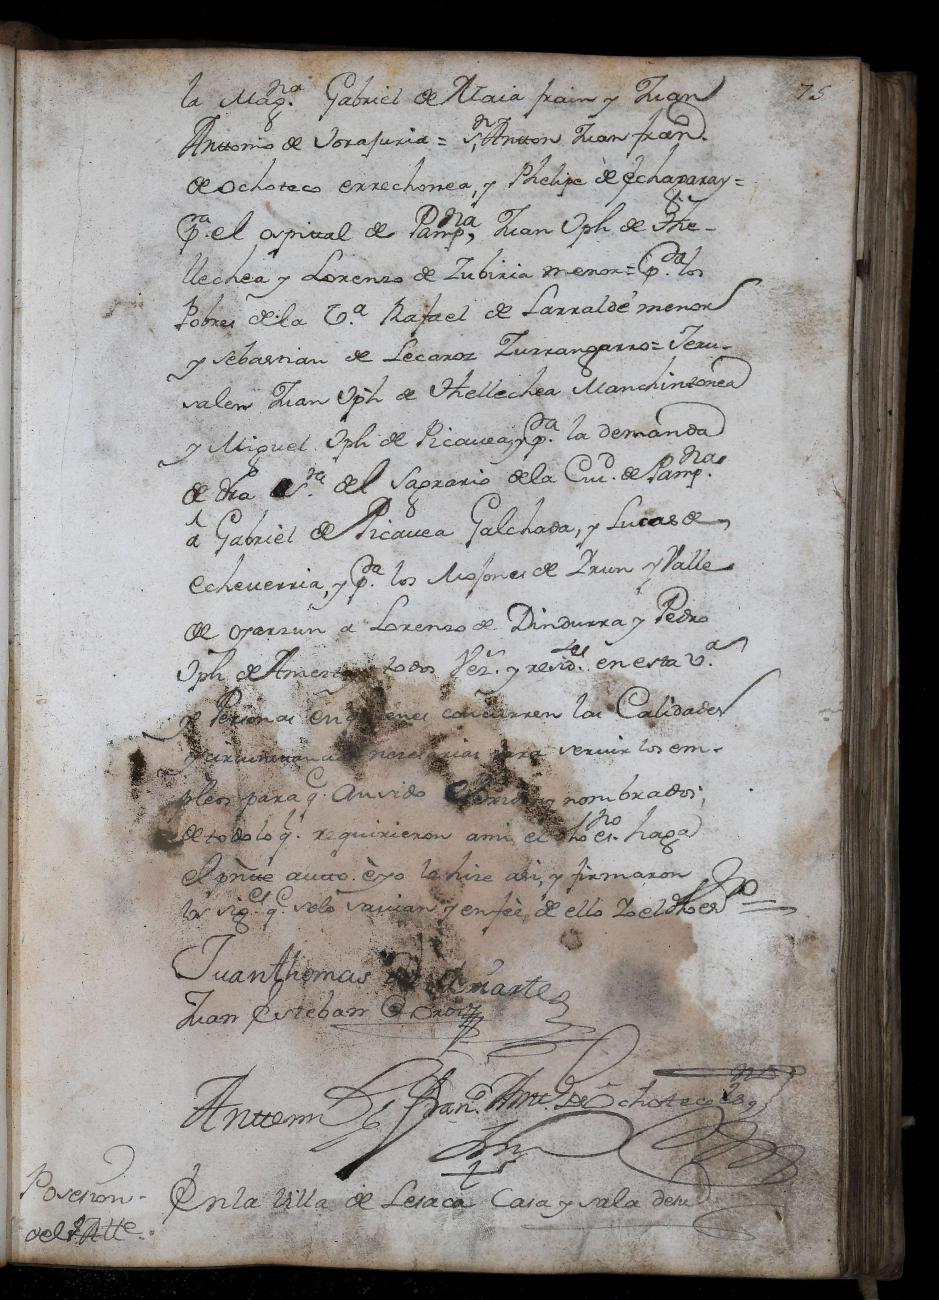 75
la Mag.na Gabriel de Alaia frain y Juan
Anttonio de Sorajuria = Sn. Antton Juan fran.
de ochoteco errechonea, y Phelipe de echaparay =
p.ra el ospital de Pamp,na Juan Jph de The-
llechea y Lorenzo de Zubiria menor = p.ra los
Pobres dela V.a Rafael de Larralde menor
y sebastian de Lecaroz Zurrangarro = Jeru-
salen Juan Jph de Thellechea Manchinzonea
y Miguel Jph de Picavea, y p.ra la demanda
de nra S.ra del Sagrario dela Ciu.d de Pamp.na
a Gabriel de Picavea Galchada, y Lucas de
echeverria, y p.ra los Mojones de Irun y Valle
de oyarzun a Lorenzo de Dindurra y Pedro
Jph de todos Vez.s y resid.tes en esta V.a
y Personas en quienes concurren las Calidades
y circunstancias necesarias para servir los em-
pleos para q.e an sido y nombrados,
de todo lo q.e requirieron ami el dho es.no haga
el pnte autto. e yo lo hize asi, y firmaron
los sig.tes q.e solo savian y enfee de ello Yo el dho es.no
Juan Thomas de
Juan Esteban
Anttemi Fran.co Antt.o de Ochoteco es.no
Posesion
del Alle.
En la Villa de Lesaca Casa y sala de su